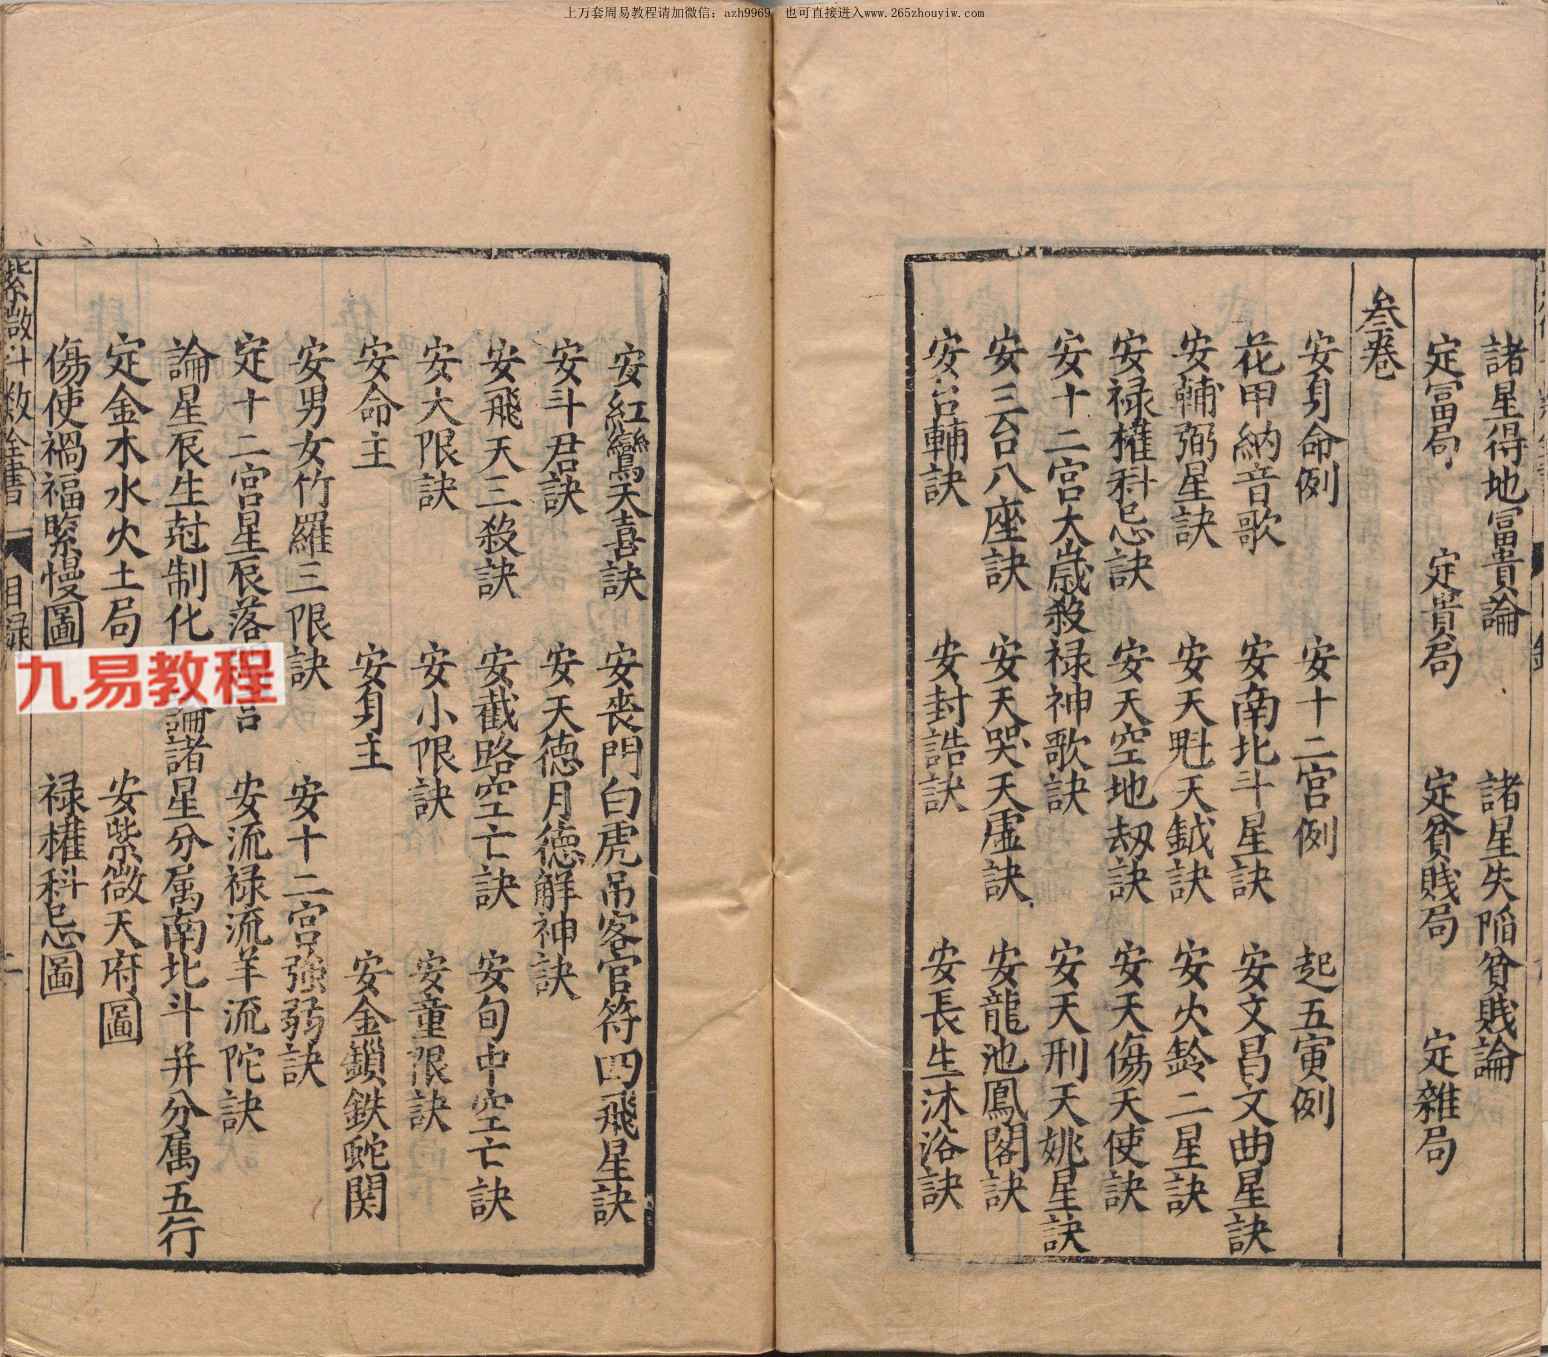 上万套周易教程请加微信：azh9969 也可直接进入www.265zhouyiw.com
諸星得地富貴論 諸星失陷貧賎論
定冨局 定貴局 定貧賎局 定雜局
叁卷
安身命例 安十二宫例 起五寅例
花甲納音歌 安南北斗星訣 安文昌文曲星訣
安輔弼星訣 安天魁天鉞訣 安火鈴二星訣
安禄權科忌訣 安天空地刼訣 安天傷天使訣
安十二宫太歲殺禄神歌訣 安天刑天姚星訣
安三台八座訣 安天哭天虚訣 安龍池鳳閣訣
安台輔訣 安封誥訣 安長生沐浴訣
安紅鸞天喜訣 安丧門白虎吊客官符四飛星訣
安斗君訣 安天德月德觧神訣
安飛天三殺訣 安截路空亡訣 安旬中空亡訣
安大限訣 安小限訣 安童限訣
安命主 安身主 安金鎖鉄蛇関
安男女竹羅三限訣 安十二宫強弱訣
定十二宫星辰落 安流禄流羊流陀訣
論星辰生尅制化 論諸星分属南北斗并分属五行
定金木水火土局 安紫微天府圖
傷使禍福緊慢圖 禄權科忌圖
紫微斗数全書 目録 二
九易教程